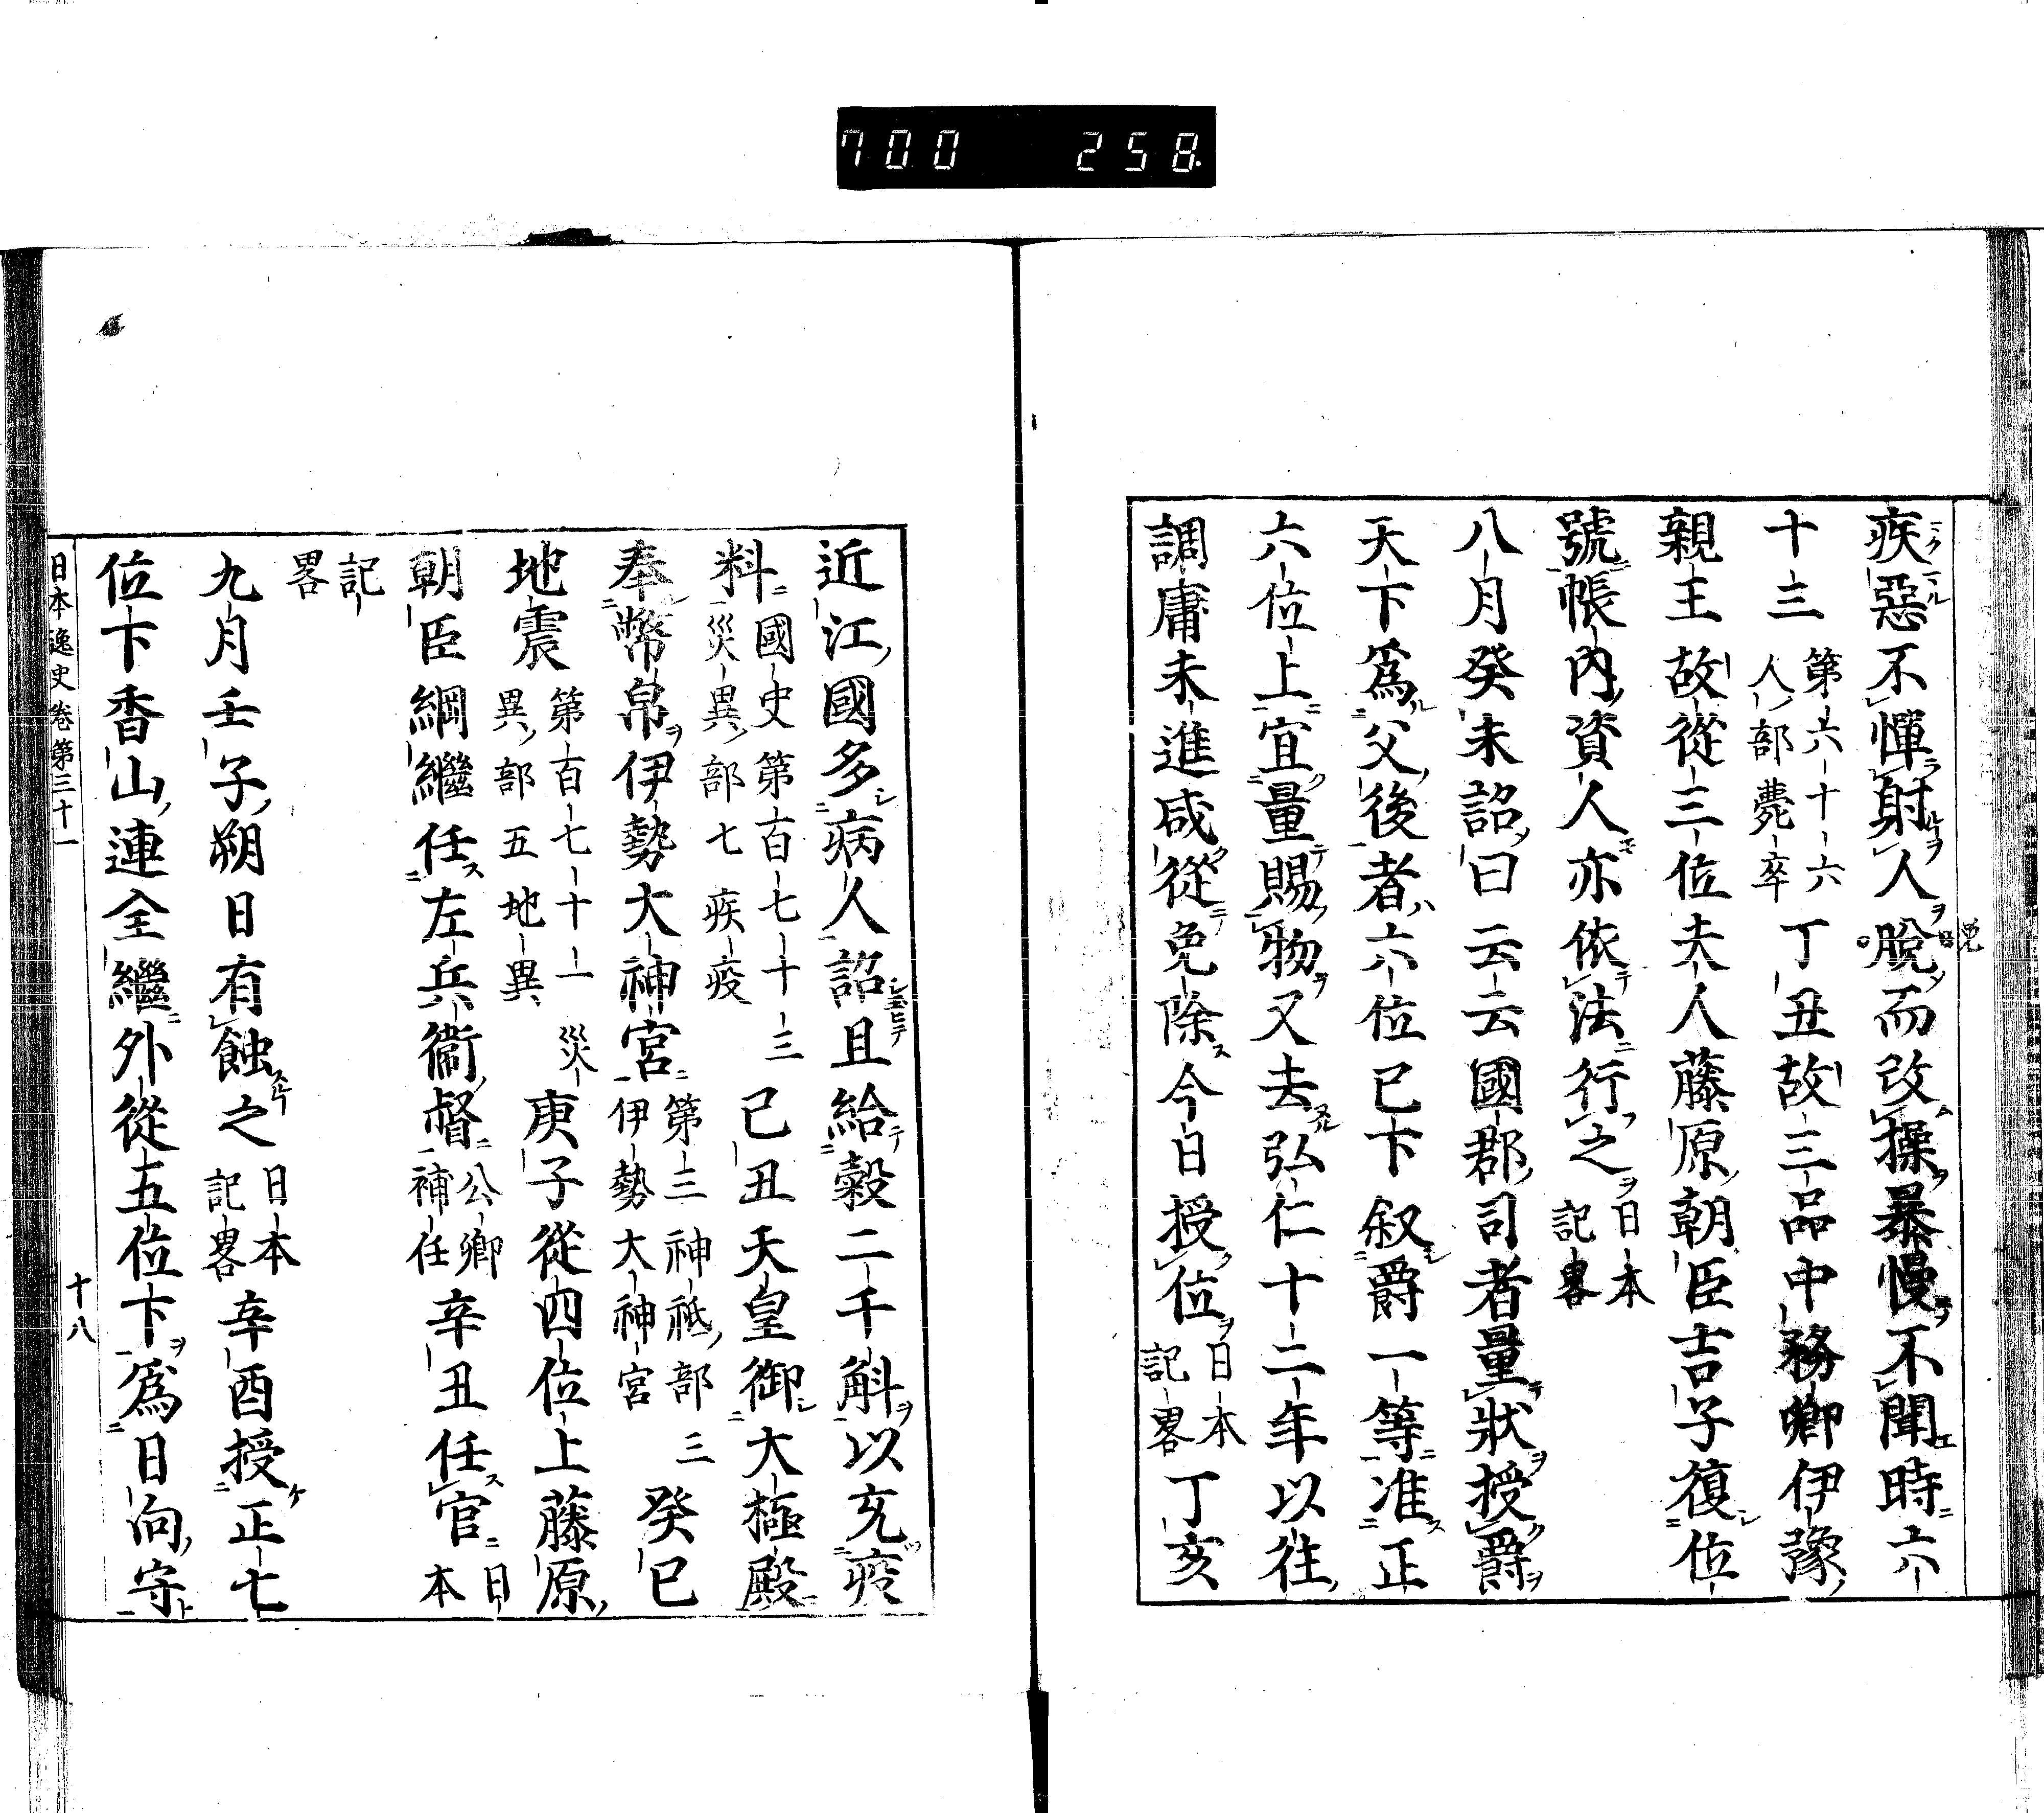 700 258
疾惡不憚射人脫而改操暴慢不聞時六
免
十三第六十六人部薨卒丁丑故三品中務卿伊豫
親王故從三位夫人藤原朝臣吉子復位
號帳內資人亦依法行之日本記畧
八月癸未詔曰云云國郡司者量狀授爵
天下爲父後者六位已下叙爵一等准正
六位上宜量賜物又去弘仁十二年以往
調庸未進咸從免除今日授位日本記畧丁亥
近江國多病人詔且給穀二千斛以充疫
料國史第百七十三災異部七疾疫己丑天皇御大極殿
奉幣帛伊勢大神宮第三神祇部三伊勢大神宮癸巳
地震第百七十一災異部五地異庚子從四位上藤原
朝臣綱繼任左兵衞督公卿補任辛丑任官日本
記畧
九月壬子朔日有蝕之日本記畧辛酉授正七
位下香山連全繼外從五位下爲日向守
日本逸史卷第三十一
十八